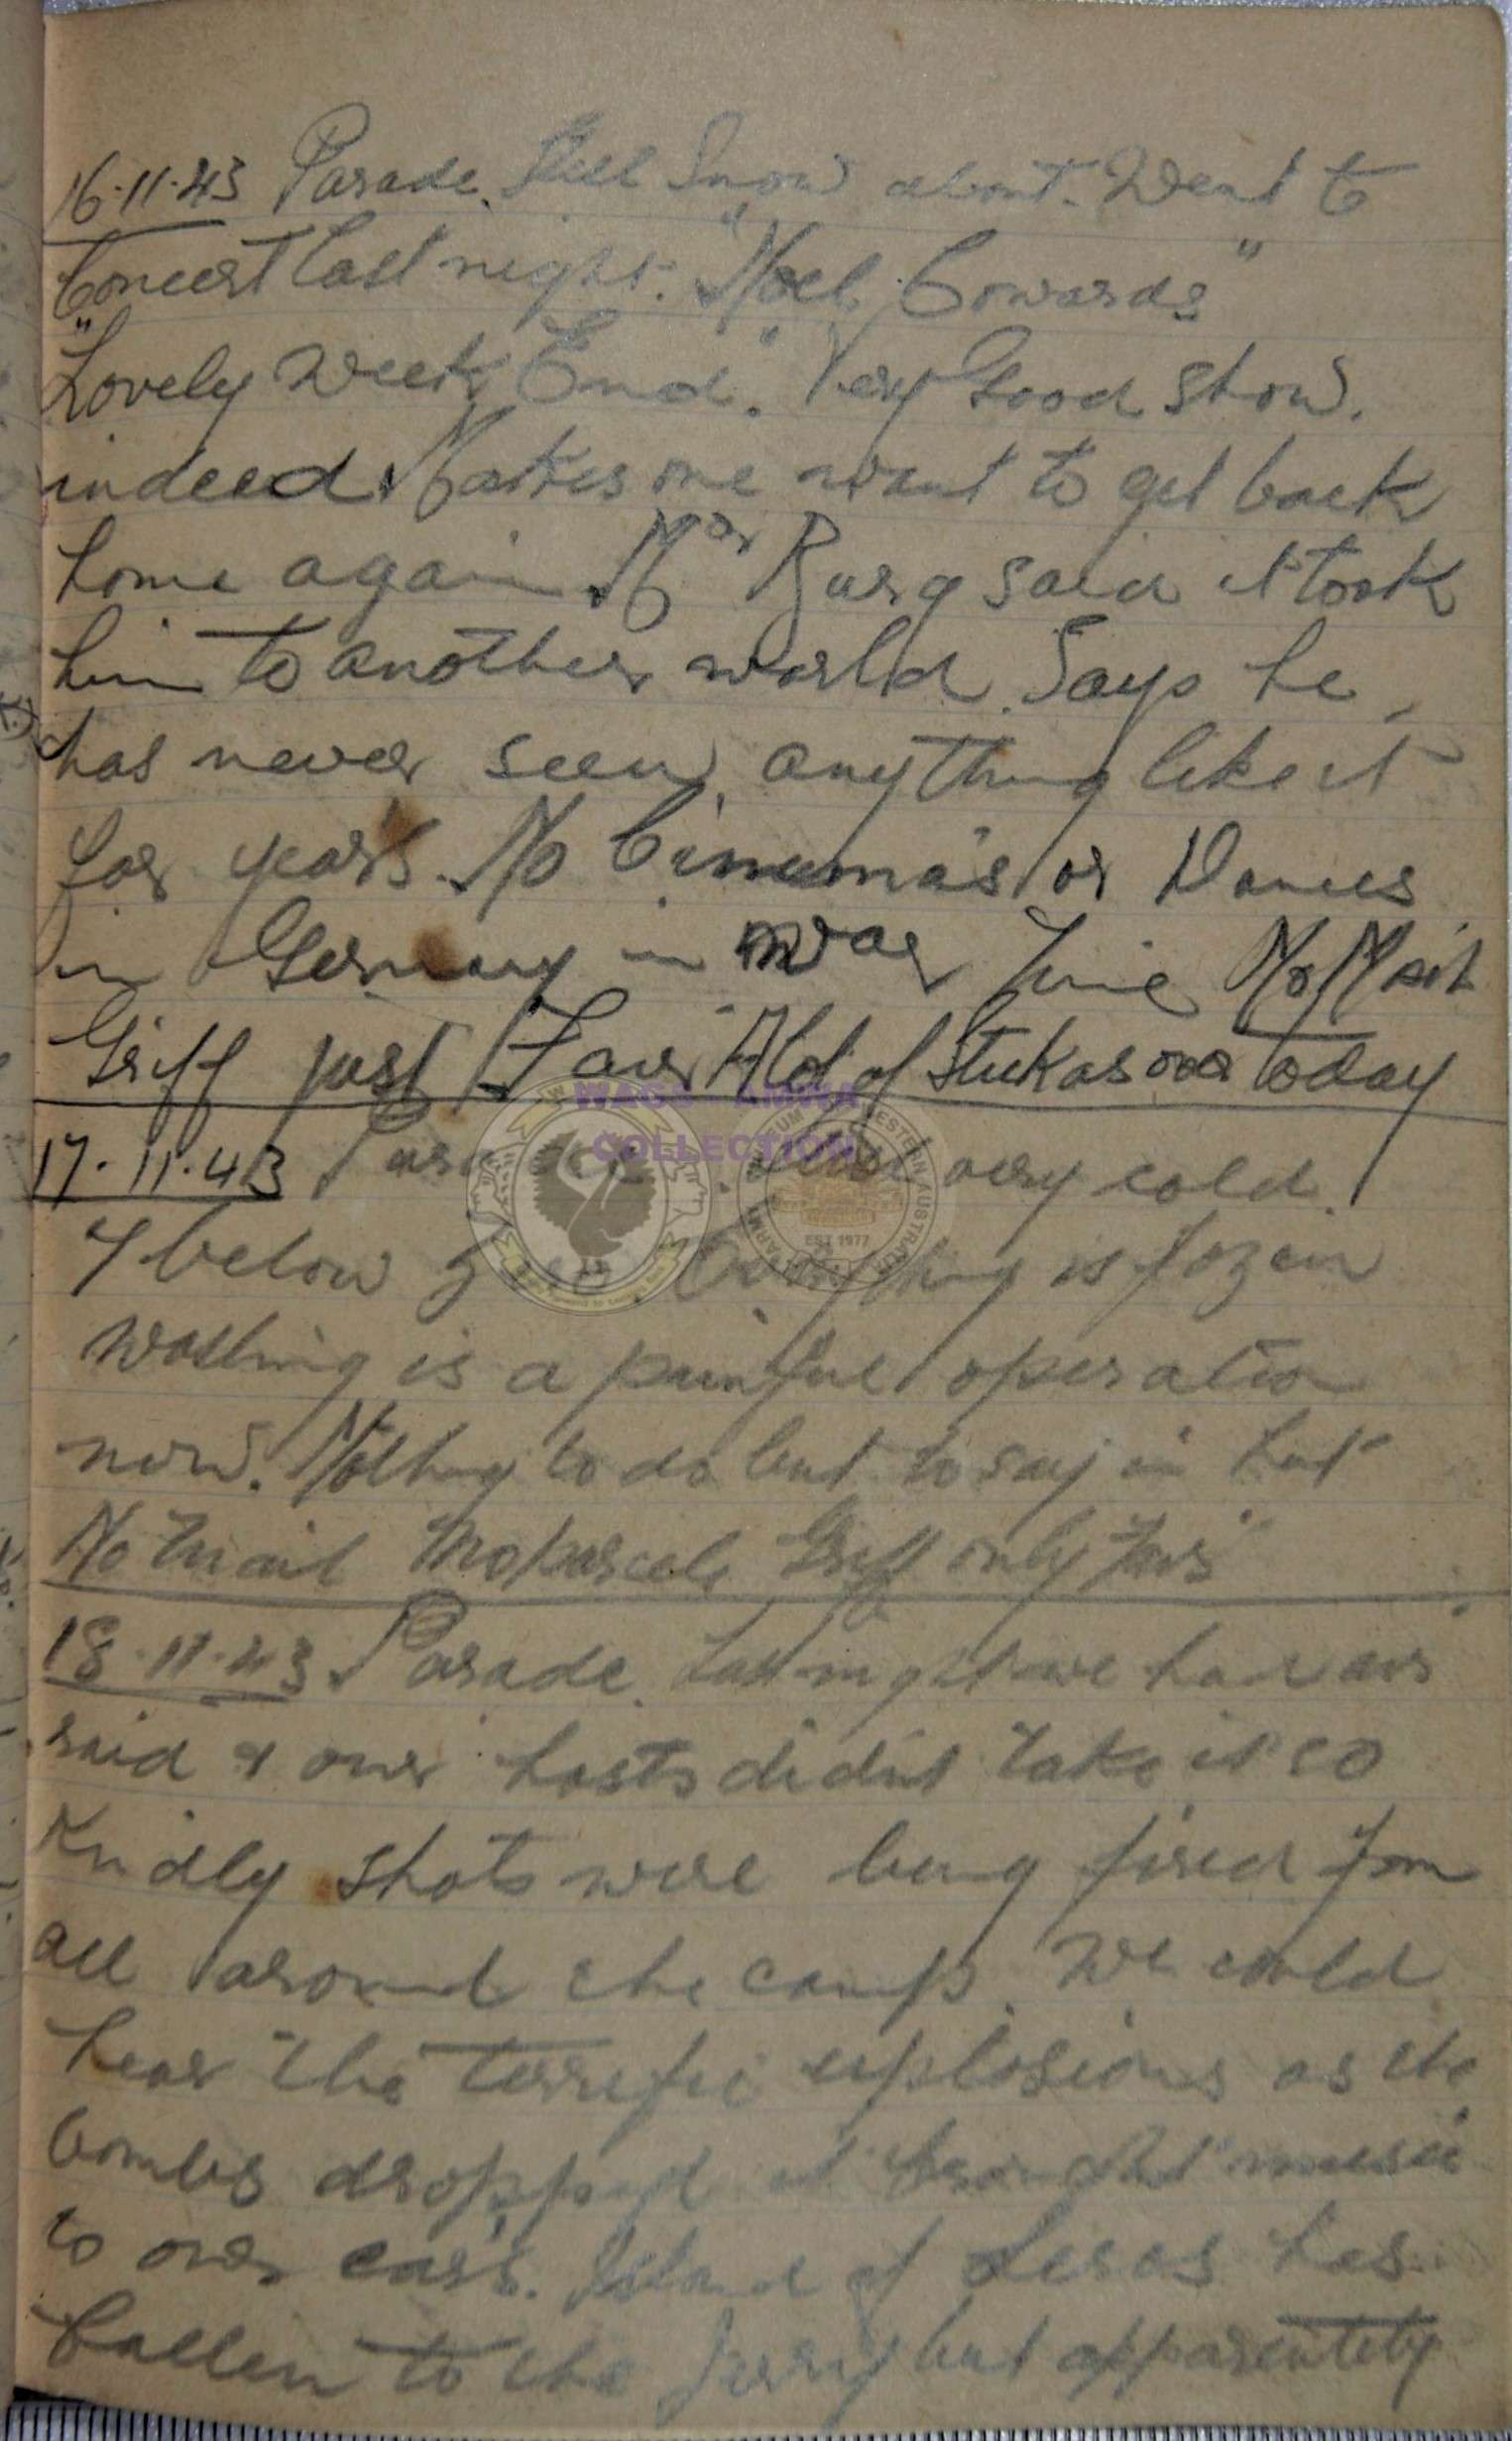 16.11.43 Parade. Still Snow about. Went to
Concert last night. "Noel Cowards"
"Lovely Week End". Very Good Show.
indeed. Makes me want to get back
home again. Mar Burg said it took
him to another world. Says he
has never seen anything like it
for years. No Cinema's or Dances
in Germany in war Time No Mail
Griff just Fair A lot of Stukas over today
17.11.43 Parade. Still very cold.
7 below zero. Everything is fozen
Washing is a painful operation
now. Nothing to do but to say in hut
No Mail No parcels Griff only Fair
18.11.43 Parade. Last night we had air
raid & our hosts didnt take it so
Kindly shots were being fired from
all around the camp. We could
hear the terrific explosions as the
bombs dropped it brought music
to our ears. Island of Leros has
fallen to the Jerry but apparently
WAGS AMWA
COLLECTION
EST 1977